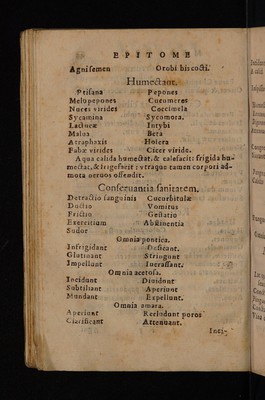 EPITOME
Agni semen Orobi biscocti.
Humectant.
Ptisana Pepones
Melopepones Cucumeres
Nuces virides Coccimela
Sycamina Sycomora.
Lactucæ Intybi
Malua Beta
Atraphaxis Holera
Fabæ virides Cicer viride.
Aqua calida humectat, & calefacit: frigida hu-
mectat, & frigefacit: vtraque tamen corpori ad-
mota neruos offendit.
Conseruantia sanitatem.
Detractio sanguinis Cucurbitulæ
Ductio Vomitus
Frictio Gestatio
Exercitium Abstinentia
Sudor
Omnia pontica.
Infrigidant Desiccant.
Glutinant Stringunt
Impellunt Incrassant.
Omnia acetosa.
Incidunt Diuidunt
Subtiliant Aperiunt
Mundant Expellunt.
Omnia amara.
Aperiunt Recludunt poros
Clarificant Attenuant.